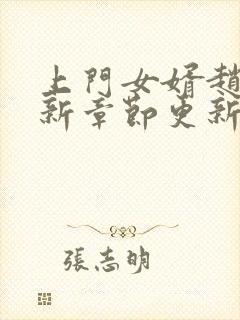 上門女婿趙
新章節更新
張志明